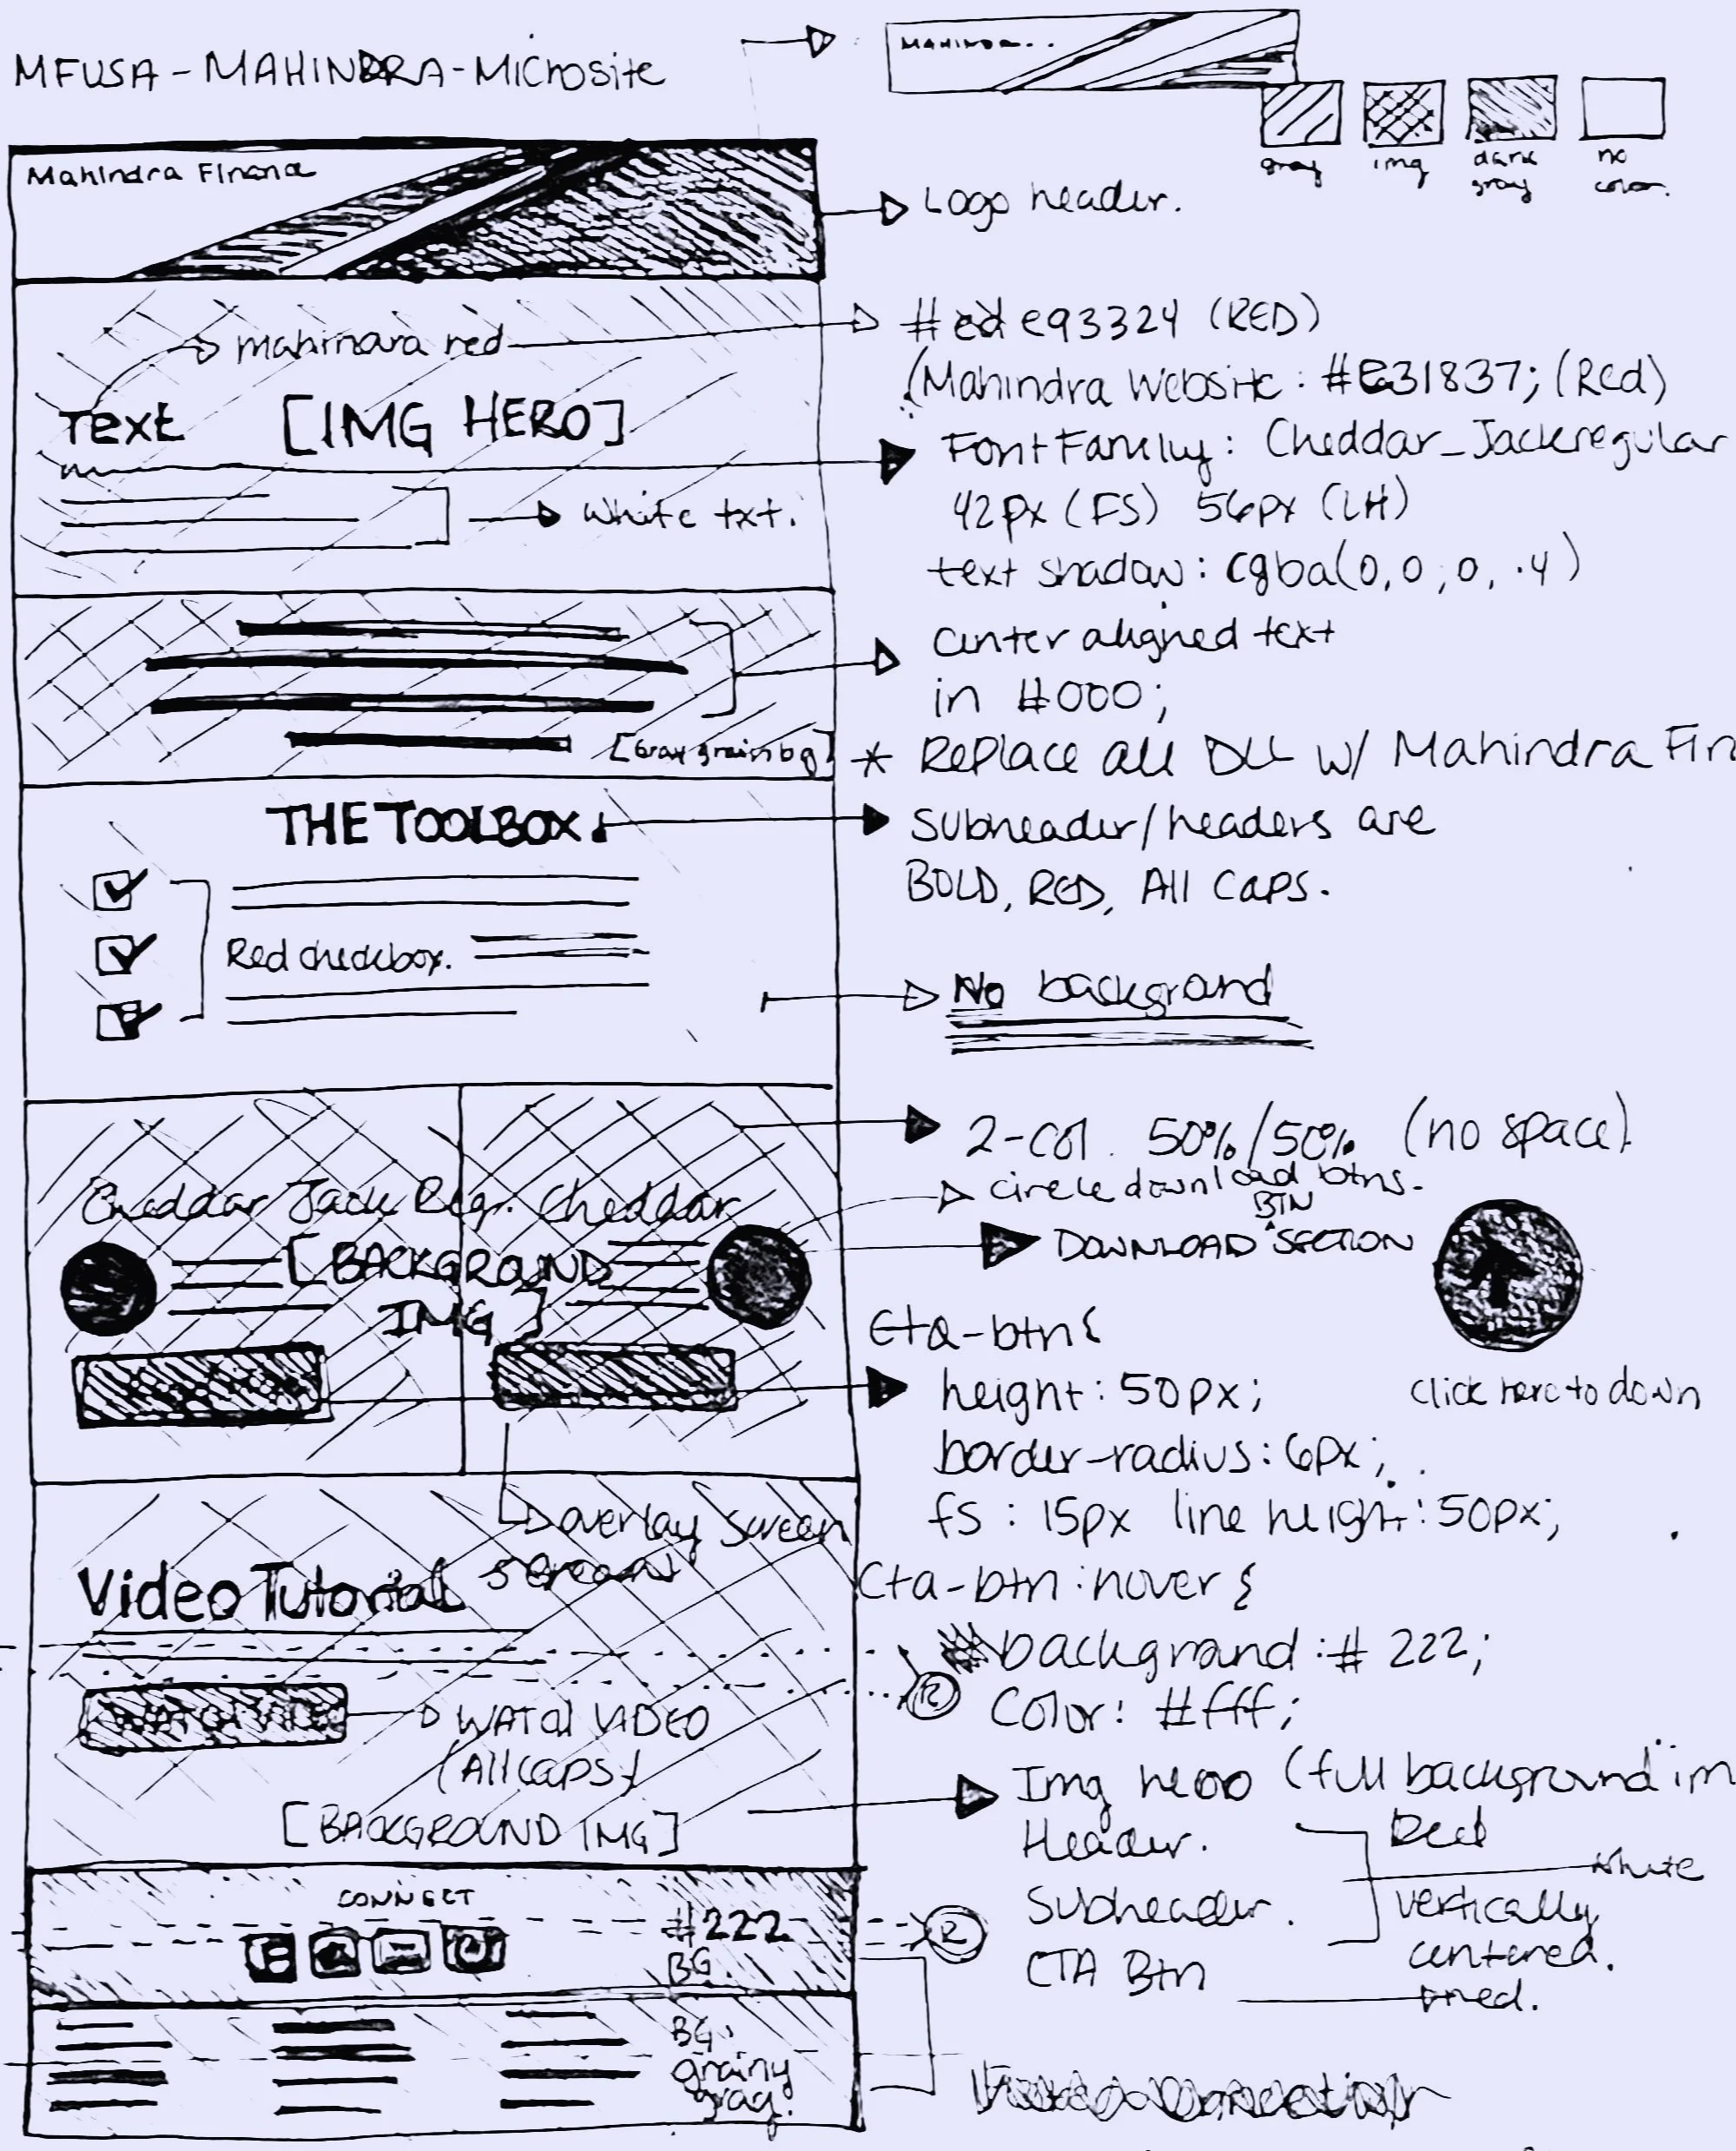 MFUSA - MAHINDRA - Microsite
MAHINDRA...
gray
img
dark gray
no color.
Mahindra Finance
Logo header.
mahindra red
#ed e93324 (RED)
(Mahindra Website: #E31837; (Red)
Text [IMG HERO]
Font Family: Cheddar_Jackregular
42px (FS) 56px (LH)
White txt.
text shadow: rgba(0,0,0,.4)
center aligned text
in #000;
[Gray grain bg]
* Replace all DLL w/ Mahindra Fin
THE TOOLBOX
Subheader/headers are
BOLD, RED, All Caps.
Red checkbox.
No background
2-col. 50%/50% (no space)
circle download btns.
BTN
DOWNLOAD SECTION
Cheddar Jack Reg. Cheddar
[BACKGROUND
IMG]
Cta-btn{
height: 50px;
click here to down
border-radius: 6px;
fs: 15px line height: 50px;
overlay screen
screen
Video Tutorial
Cta-btn:hover {
background: #222;
Color: #fff;
R
WATCH VIDEO
(All caps)
[BACKGROUND IMG]
Img hero (full background im
Header.
Red
white
Subheader.
vertically
centered.
CTA Btn
CONNECT
#222
BG.
R
BG:
grainy
gray.